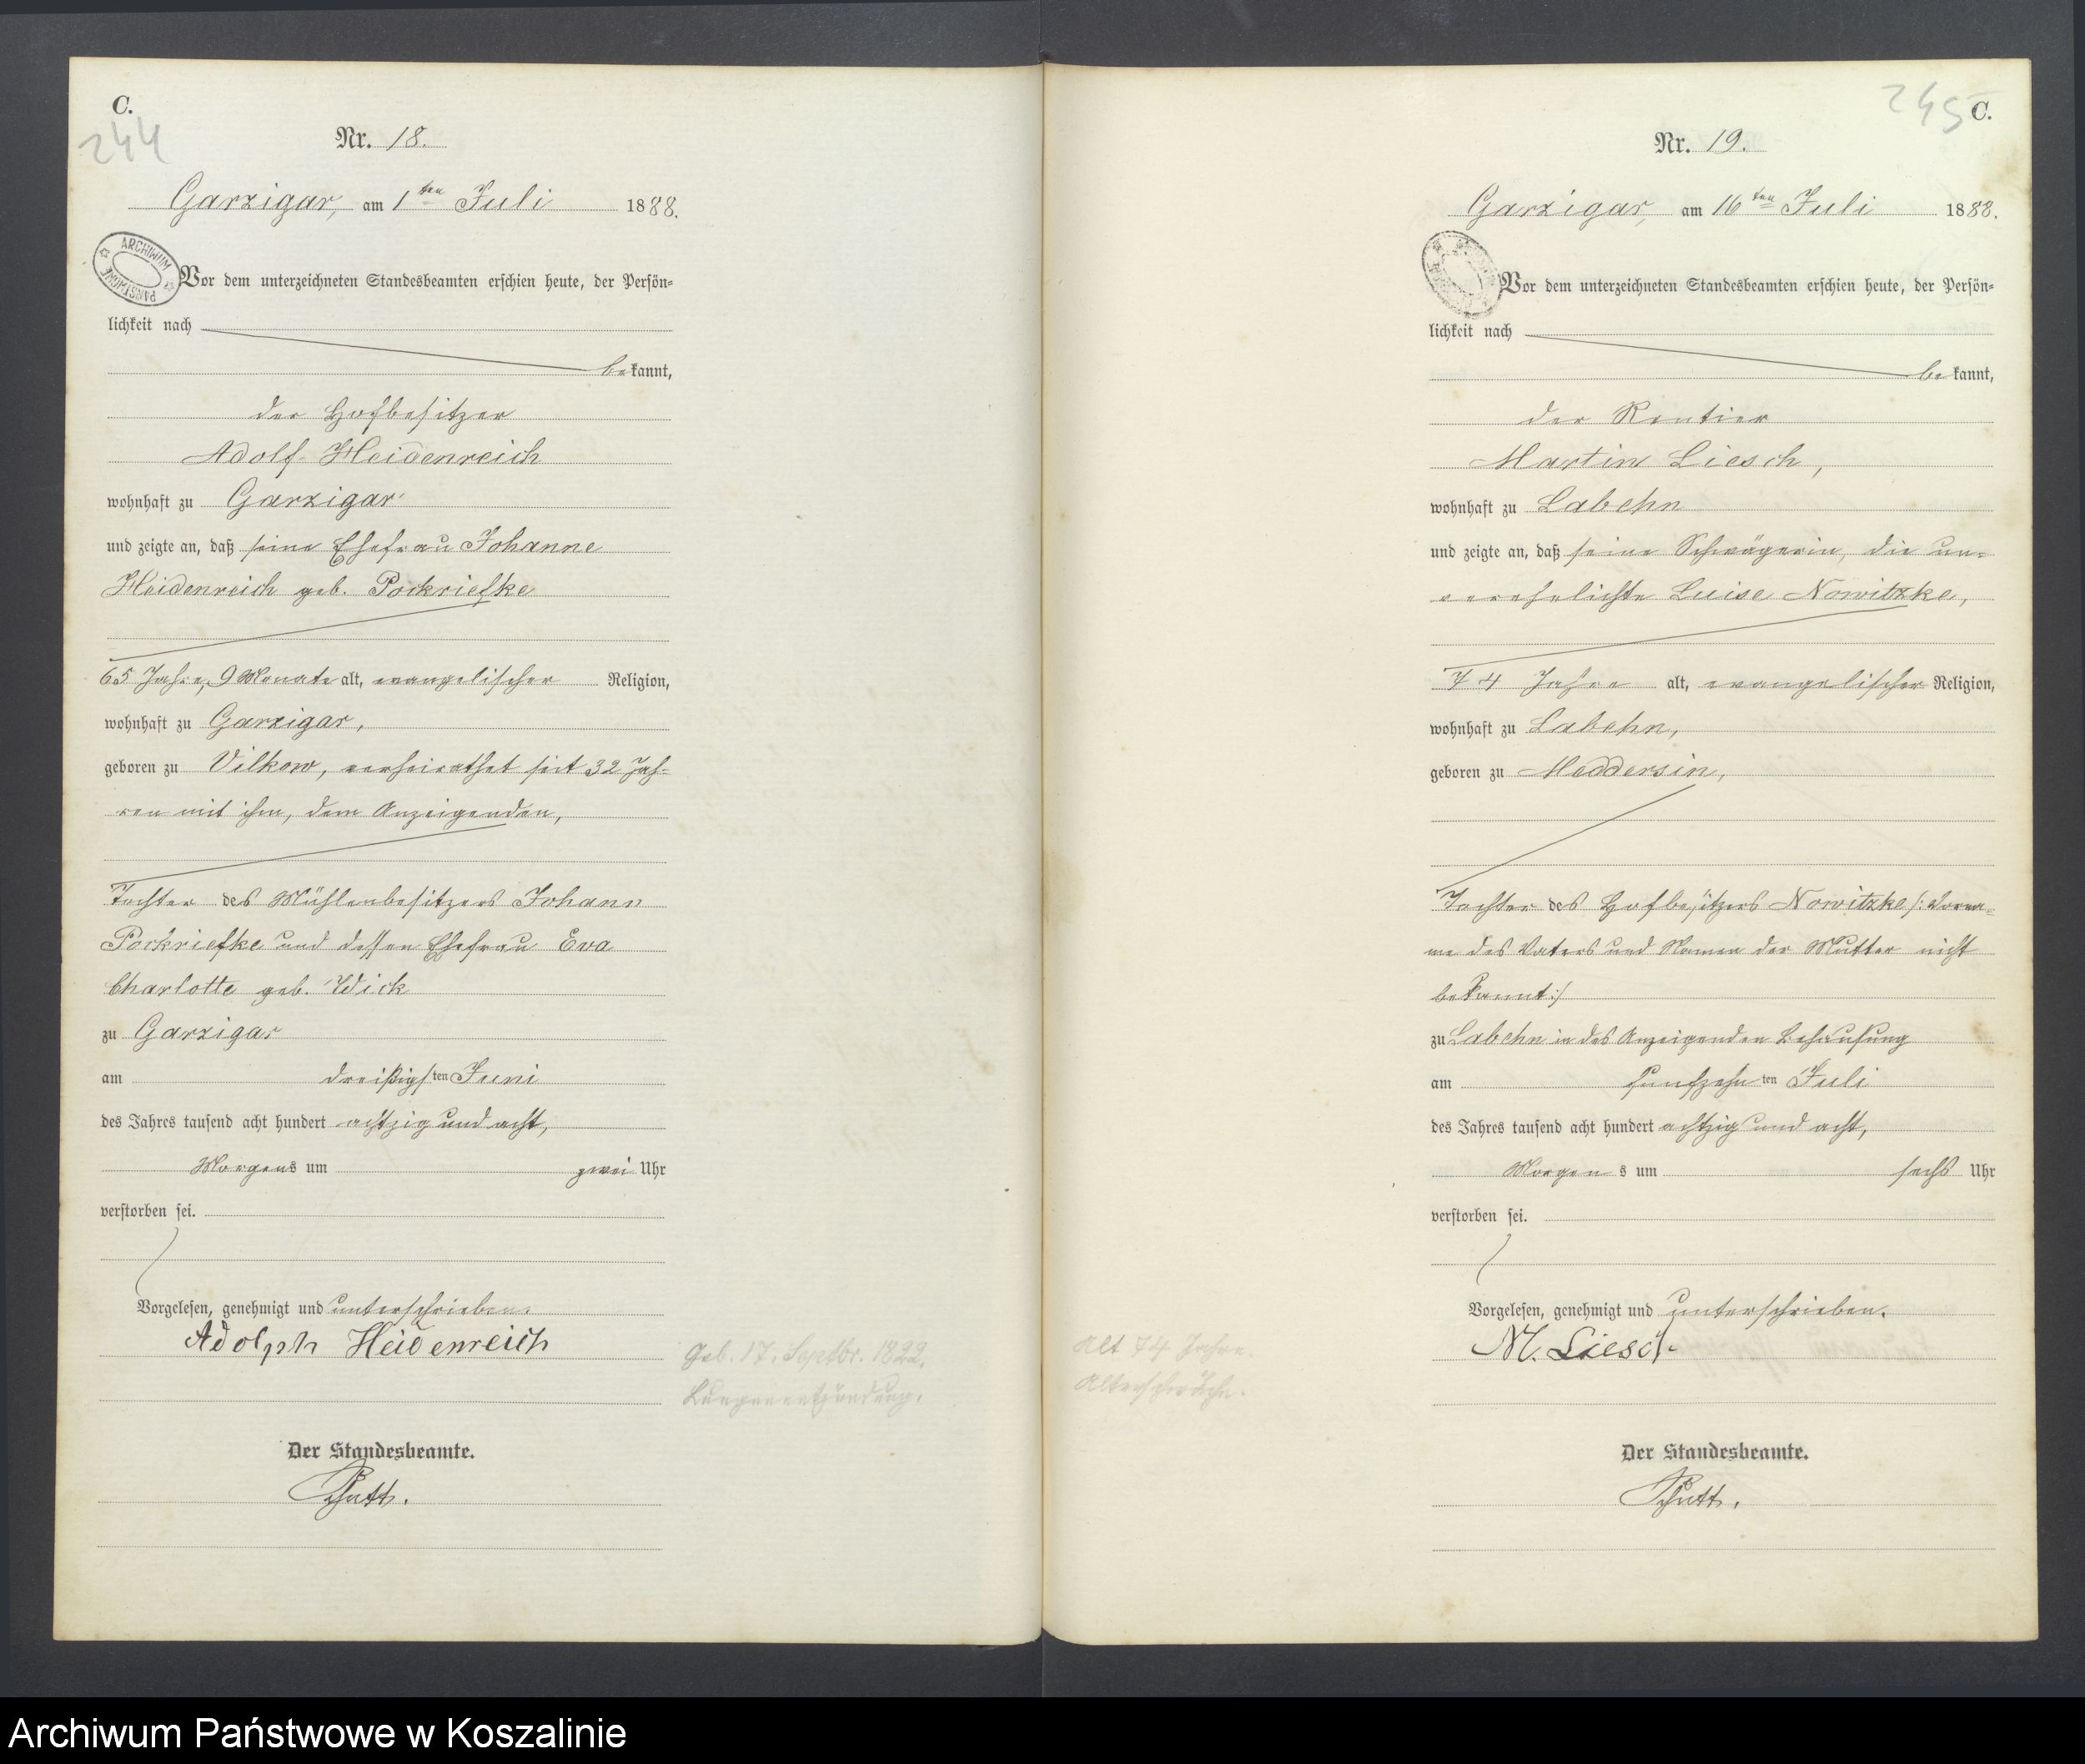 C.
244
Nr. 18.
Garzigar, am 1ten Juli 1888.
ARCHIWUM PAŃSTWOWE
Vor dem unterzeichneten Standesbeamten erschien heute, der Persön-
lichkeit nach
bekannt,
der Hofbesitzer
Adolf Heidenreich
wohnhaft zu Garzigar
und zeigte an, daß seine Ehefrau Johanne
Heidenreich geb. Pockriefke
65 Jahre, 9 Monate alt, evangelischer Religion,
wohnhaft zu Garzigar,
geboren zu Vilkow, verheirathet seit 32 Jah-
ren mit ihm, dem Anzeigenden,
Tochter des Mühlenbesitzers Johann
Pockriefke und dessen Ehefrau Eva
Charlotte geb. Wick
zu Garzigar
am dreißigsten Juni
des Jahres tausend acht hundert achtzig und acht,
Morgens um zwei Uhr
verstorben sei.
Vorgelesen, genehmigt und unterschrieben.
Adolph Heidenreich
Geb. 17. Septbr. 1822.
Lungenentzündung.
Der Standesbeamte.
245
C.
Nr. 19.
Garzigar, am 16ten Juli 1888.
Vor dem unterzeichneten Standesbeamten erschien heute, der Persön-
lichkeit nach
bekannt,
der Rentier
Martin Liesch,
wohnhaft zu Labehn
und zeigte an, daß seine Schwägerin, die un-
verehelichte Luise Nowitzke,
74 Jahre alt, evangelischer Religion,
wohnhaft zu Labehn,
geboren zu Meddersin,
Tochter des Hofbesitzers Nowitzke /: Vorna-
me des Vaters und Namen der Mutter nicht
bekannt :/
zu Labehn in des Anzeigenden Behausung
am funfzehnten Juli
des Jahres tausend acht hundert achtzig und acht,
Morgens um sechs Uhr
verstorben sei.
Vorgelesen, genehmigt und unterschrieben.
M. Liesch.
Alt 74 Jahre.
Altersschwäche.
Der Standesbeamte.
Archiwum Państwowe w Koszalinie